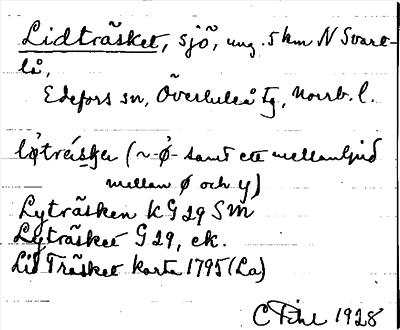 Lidträsket, sjö, ung. 5 km N Svart-
lå,
Edefors sn, Överluleå tg, Norrb. l.
(~ -ǿ- samt ett mellanljud
mellan ø och y)
Lyträsken KG 29 SM
Lyträsket G 29, ek.
Lid Träsket karta 1795 (La)
C Fihl 1928